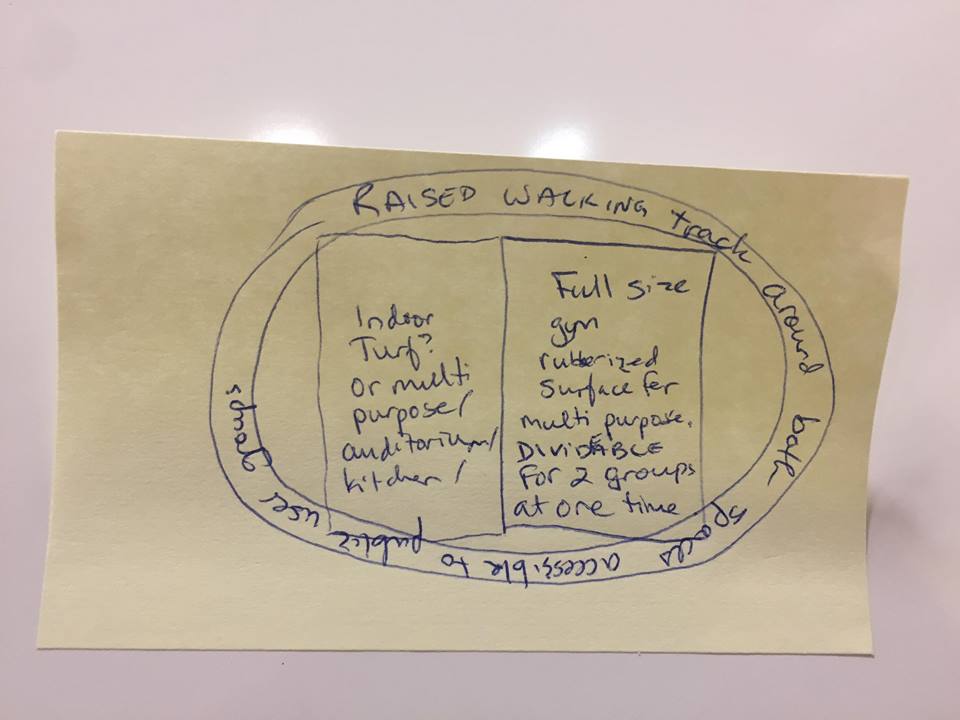 RAISED WALKING track around both spaces accessible to public user groups
Indoor
Turf?
or multi
purpose/
auditorium/
kitchen/
Full size
gym
rubberized
surface for
multi purpose.
DIVIDEABLE
For 2 groups
at one time